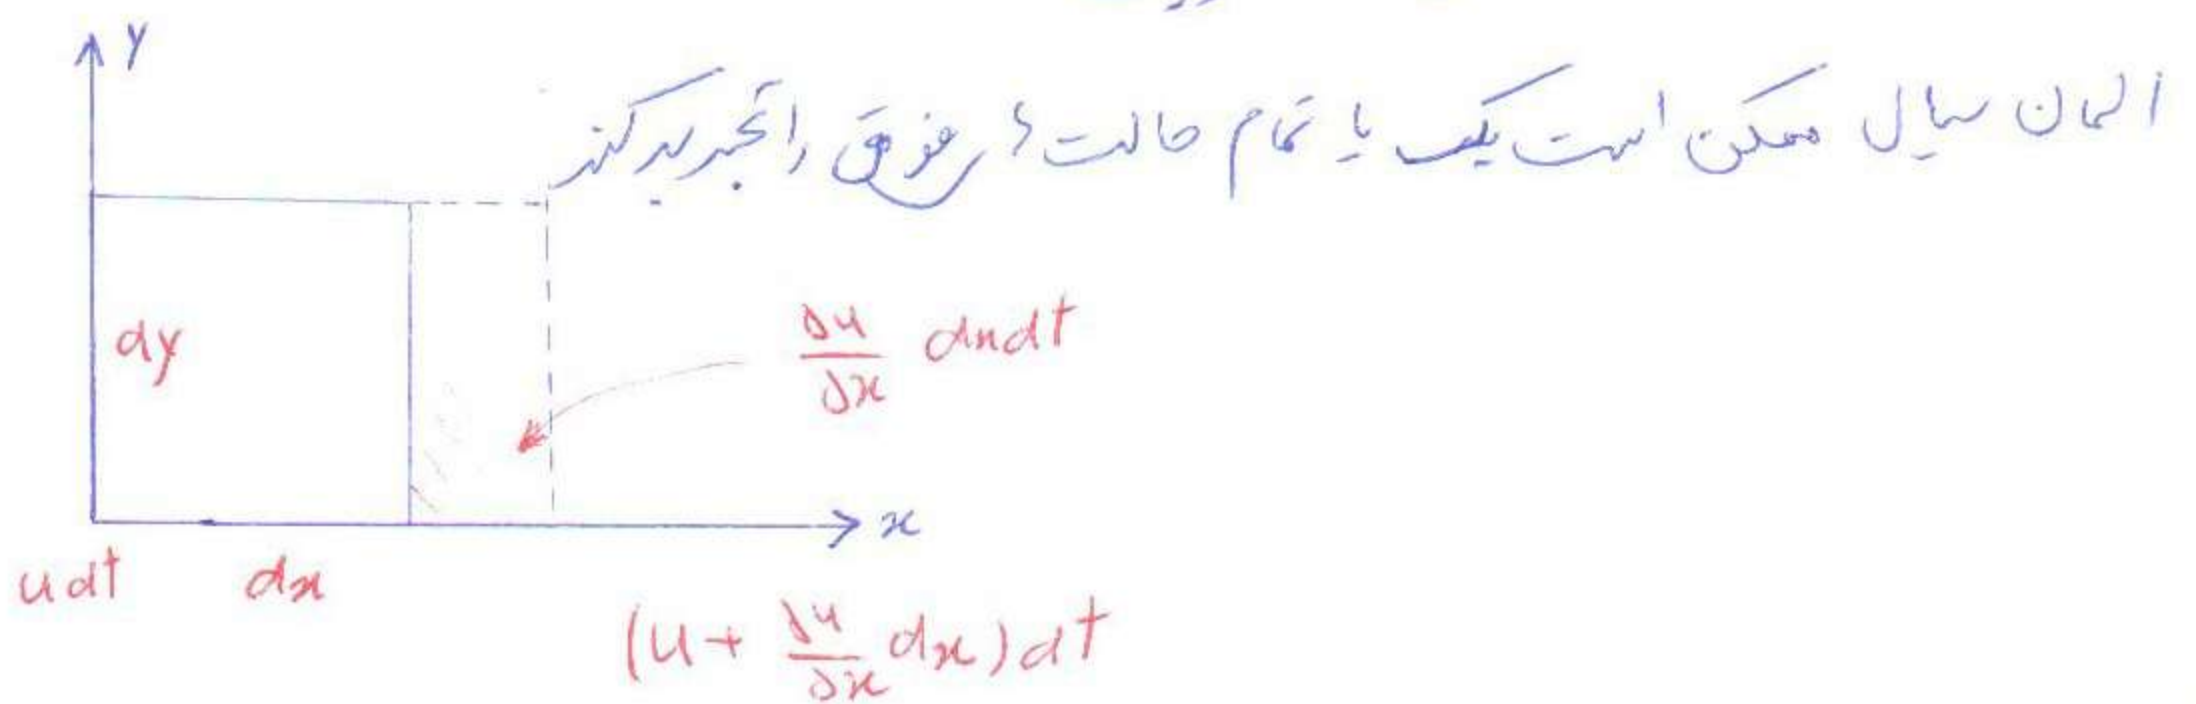 y
المان سیال ممکن است یک یا تمام حالت های فوق را تجربه کند
dy
∂u/∂x dxdt
x
udt dx
(u + ∂u/∂x dx)dt